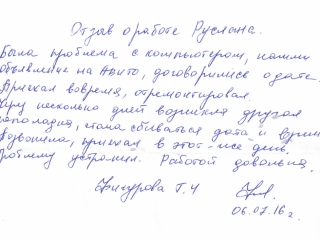 Отзыв о работе Руслана.
Была проблема с компьютером, нашли
объявление на Авито, договорились о дате.
Приехал вовремя, отремонтировал.
Через несколько дней возникла другая
неполадка, стала сбиваться дата и время
Позвонила, приехал в этот же день.
Проблему устранил. Работой довольна.
Т.Ч
06.07.16г.